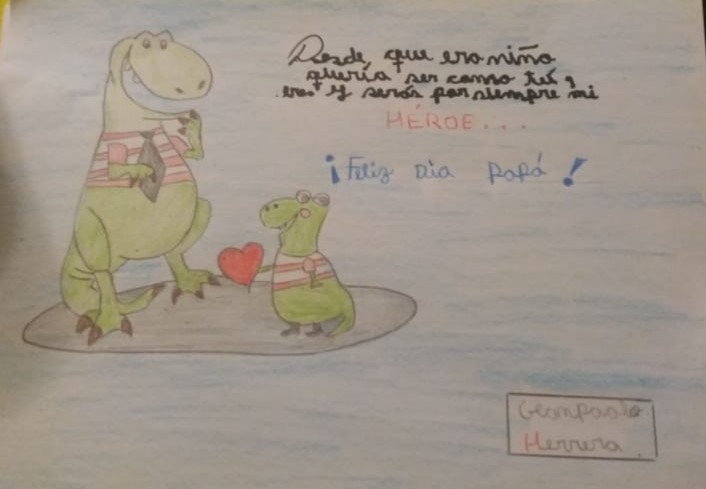 Desde que era niño
quería ser como tú,
eres y serás por siempre mi
HÉROE...
¡Feliz Dia papá!
Geanpaolo
Herrera.